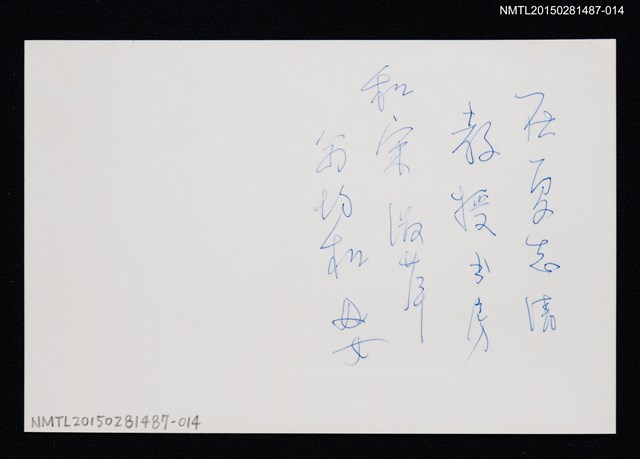 NMTL20150281487-014
在夏志清
教授书房
和宋淑萍
翁均和母女
NMTL20150281487-014